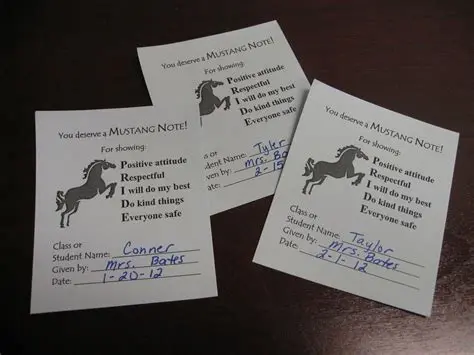 You deserve a MUSTANG NOTE!
For showing:
Positive attitude
Respectful
I will do my best
Do kind things
Everyone safe
Class or
Student Name: Conner
Given by: Mrs. Bates
Date: 1-20-12
You deserve a MUSTANG NOTE!
For showing:
Positive attitude
Respectful
I will do my best
Do kind things
Everyone safe
Class or
Student Name: Tyler
Given by: Mrs.
Date:
You deserve a MUSTANG NOTE!
For showing:
Positive attitude
Respectful
I will do my best
Do kind things
Everyone safe
Class or
Student Name: Taylor
Given by: Mrs. Bates
Date: 2-1-12